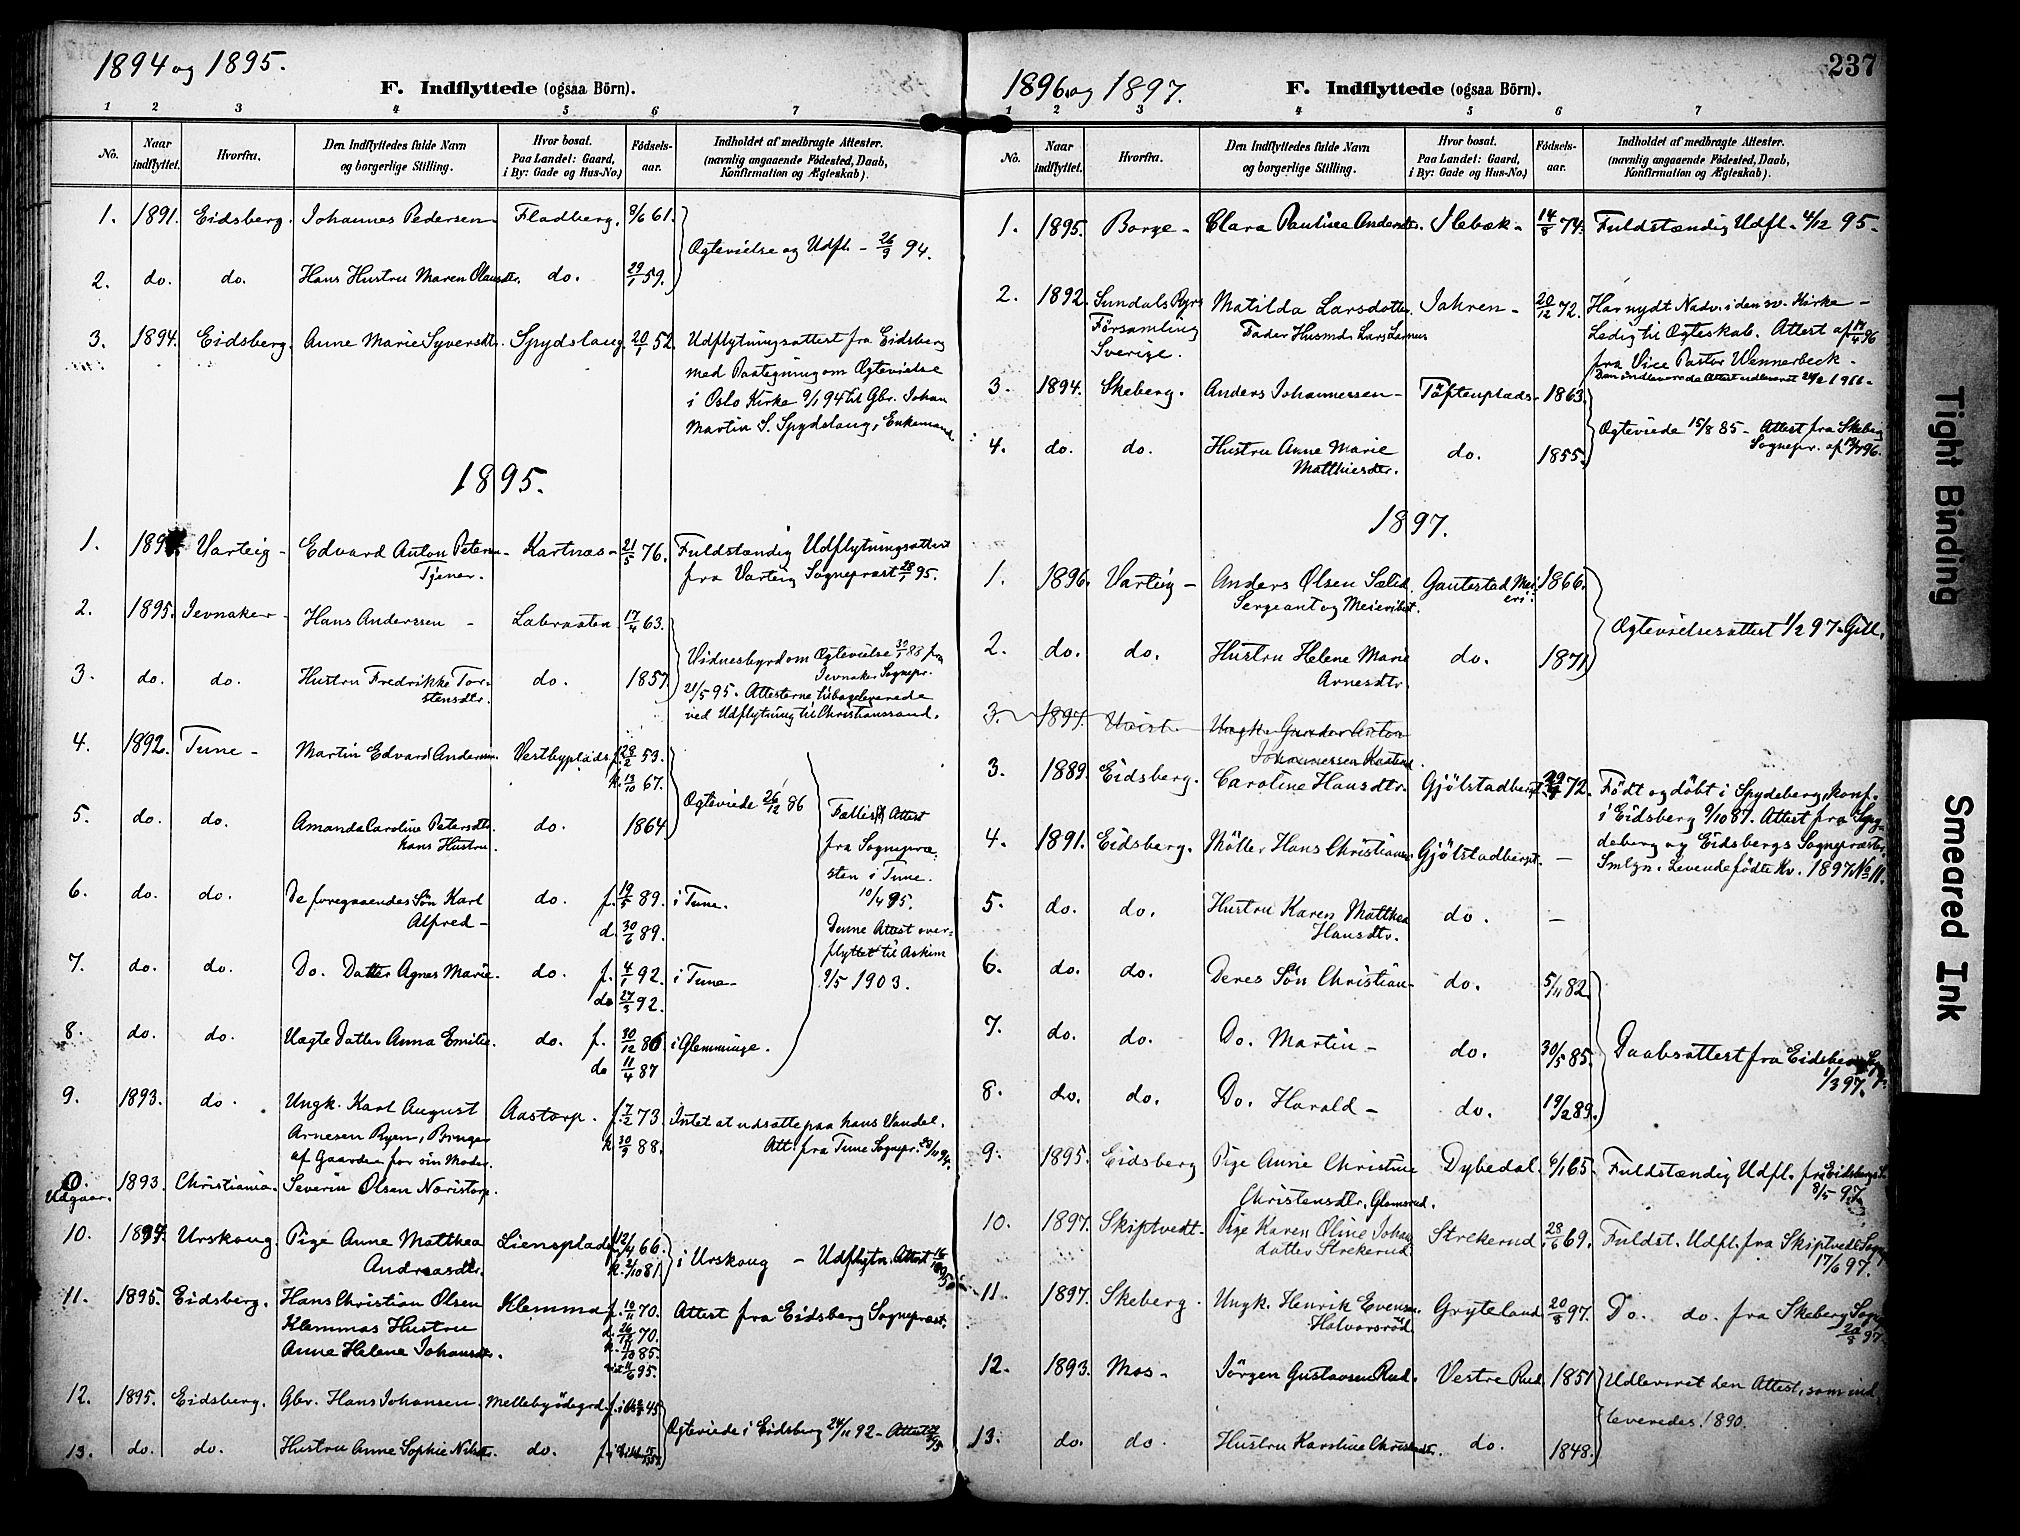 1894 og 1895.
F. Indflyttede (ogsaa Börn).
1 2 3 4 5 6 7
No. Naar indflyttet. Hvorfra. Den Indflyttedes fulde Navn og borgerlige Stilling. Hvor bosat. Paa Landet: Gaard, i By: Gade og Hus-No.) Födsels-aar. Indholdet af medbragte Attester. (navnlig angaaende Födested, Daab, Konfirmation og Ægteskab).
1. 1891. Eidsberg. Johannes Pedersen Fladberg. 9/6 61.
Ægtevielse og Udfl. - 26/3 94.
2. do. do. Hans Hustru Maren Olausdtr. do. 29/1 59.
3. 1894. Eidsberg. Anne Marie Syversdt. Spydslaug. 20/1 52. Udflytningsattest fra Eidsberg
med Paategning om Ægtevielse
i Oslo Kirke 9/1 94 til Gbr. Johan
Martin S. Spydslaug, Enkemand.
1895.
1. Varteig - Edvard Anton Petersen - Kartnæs - 21/5 76. Fuldstændig Udflytningsattest
Tjener. fra Varteig Sognepræst 28/1 95.
2. 1895. Jevnaker - Hans Anderssen - Laberaaten 17/4 63.
Vidnesbyrd om Ægtevielse 30/1 88 fra
Jevnaker Sognepr.
3. do. do. Hustru Fredrikke Tor- do. 1857.
stensdtr. 21/5 95. Attesterne tilbageleverede
ved Udflytning til Christianssand.
4. 1892. Tune - Martin Edvard Andersen. Vestbyplads f. 28/2 53.
k. 13/10 67.
Ægteviede 26/12 86
5. do. do. Amanda Caroline Petersdtr. do. 1864.
hans Hustru.
Fælles Attest
fra Sognepræ-
sten i Tune.
10/4 95.
6. do. do. De foregaaendes Sön Karl do. f. 19/5 89. i Tune.
Alfred - d. 30/6 89.
Denne Attest over-
flyttet til Askim
9/5 1903.
7. do. do. Do. Datter Agnes Marie. do. f. 4/1 92. i Tune -
do 27/3 92.
8. do. do. Uægte Datter Anna Emilie. do. f. 30/12 86. i Glemminge.
do 11/4 87
9. 1893. do. Ungk. Karl August Aastorp. f. 7/2 73 Intet at udsætte paa hans Vandel.
Arnesen Ryen, Bruger k 30/9 88. Att. fra Tune Sognepr. 28/11 94.
af Gaarden for sin Moder.
0. 1893. Christiania. Severin Olsen Næristorp.
Udgaar.
10. 1894. Urskoug. Pige Anne Matthea Liensplads f. 12/4 66. i Urskoug - Udflytn. Attest
Andreasdtr. k. 2/10 81
11. 1895. Eidsberg. Hans Christian Olsen Klemma f. 10/11 70. Attest fra Eidsberg Sognepræst.
Klemmas Hustru d. 26/12 70.
Anne Helene Johansdtr. k. 85.
95.
12. 1895. Eidsberg. Gbr. Hans Johansen. Mellebyödegrd. 45
Ægteviede i Eidsberg 24/11 92 - Attest
13. do. do. Hustru Anne Sophie Nilsdtr. do.
237
1896 og 1897.
F. Indflyttede (ogsaa Börn).
1 2 3 4 5 6 7
No. Naar indflyttet. Hvorfra. Den Indflyttedes fulde Navn og borgerlige Stilling. Hvor bosat. Paa Landet: Gaard, i By: Gade og Hus-No.) Födsels-aar. Indholdet af medbragte Attester. (navnlig angaaende Födested, Daab, Konfirmation og Ægteskab).
1. 1895. Borge - Clara Pauline Andersdtr. Ilebæk - 14/8 74. Fuldstændig Udfl. 4/12 95 -
2. 1892. Sundals Ryrs Matilda Larsdotter Jahren - 20/12 72. Har nydt Nadv. i den sv. Kirke -
Församling Fader Husmd. Lars Larsson Ledig til Ægteskab. Attest af 17/4 96
Sverige. fra Vice Pastor Wennerbeck -
Den indleverede Attest udleveret
3. 1894. Skeberg. Anders Johannessen - Töftenplads - 1863.
Ægteviede 15/8 85 - Attest fra Skeberg
Sognepr. af
4. do. do. Hustru Anne Marie do. 1855.
Matthiesdtr.
1897.
1. 1896. Varteig - Anders Olsen Gautestad Mei- 1866.
Sergeant og eri.
Ægtevielsesattest 1/2 97
2. do. do. Hustru Helene Marie do. 1871
Arnesdtr.
3. 1897. Ungk. Gunder Anton
Johannessen
3. 1889. Eidsberg. Caroline Hansdtr. Gjölstadberget. 72. Födt og döbt i Spydeberg, konf.
i Eidsberg 9/10 87. Attest fra Spy-
4. 1891. Eidsberg. Möller Hans Christiansen Gjölstadberget. - deberg og Eidsbergs Sognepræster.
Smlgn. Levendefödte Kv. 1897 No 11.
5. do. do. Hustru Karen Matthea do. -
Hansdtr.
6. do. do. Deres Sön Christian - do. 5/11 82.
7. do. do. Do. Martin - do. 30/5 85.
Daabsattest fra Eidsberg
1/3 97.
8. do. do. Do. Harald - do. 19/2 89.
9. 1895. Eidsberg Pige Anne Christine Dybedal. 6/1 65. Fuldstændig Udfl. fra Eidsberg
Christensdtr. Glomsrud. 8/5 97.
10. 1897. Skiptvedt - Pige Karen Oline Johan Strekerud 28/6 69. Fuldst. Udfl. fra Skiptvedt Sogn
datter Strekerud 17/6 97.
11. 1897. Skeberg. Ungk. Henrik Evensen Gryteland. 20/8 97. Do. do. fra Skeberg Sogn
Halvorsröd 20/8 97.
12. 1893. Mos - Jörgen Gustavsen Rud. Vestre Rud. 1851 Udleveret den Attest, som ind-
leveredes 1890.
13. do. do. Hustru Karoline do. 1848.
Tight Binding
Smeared Ink